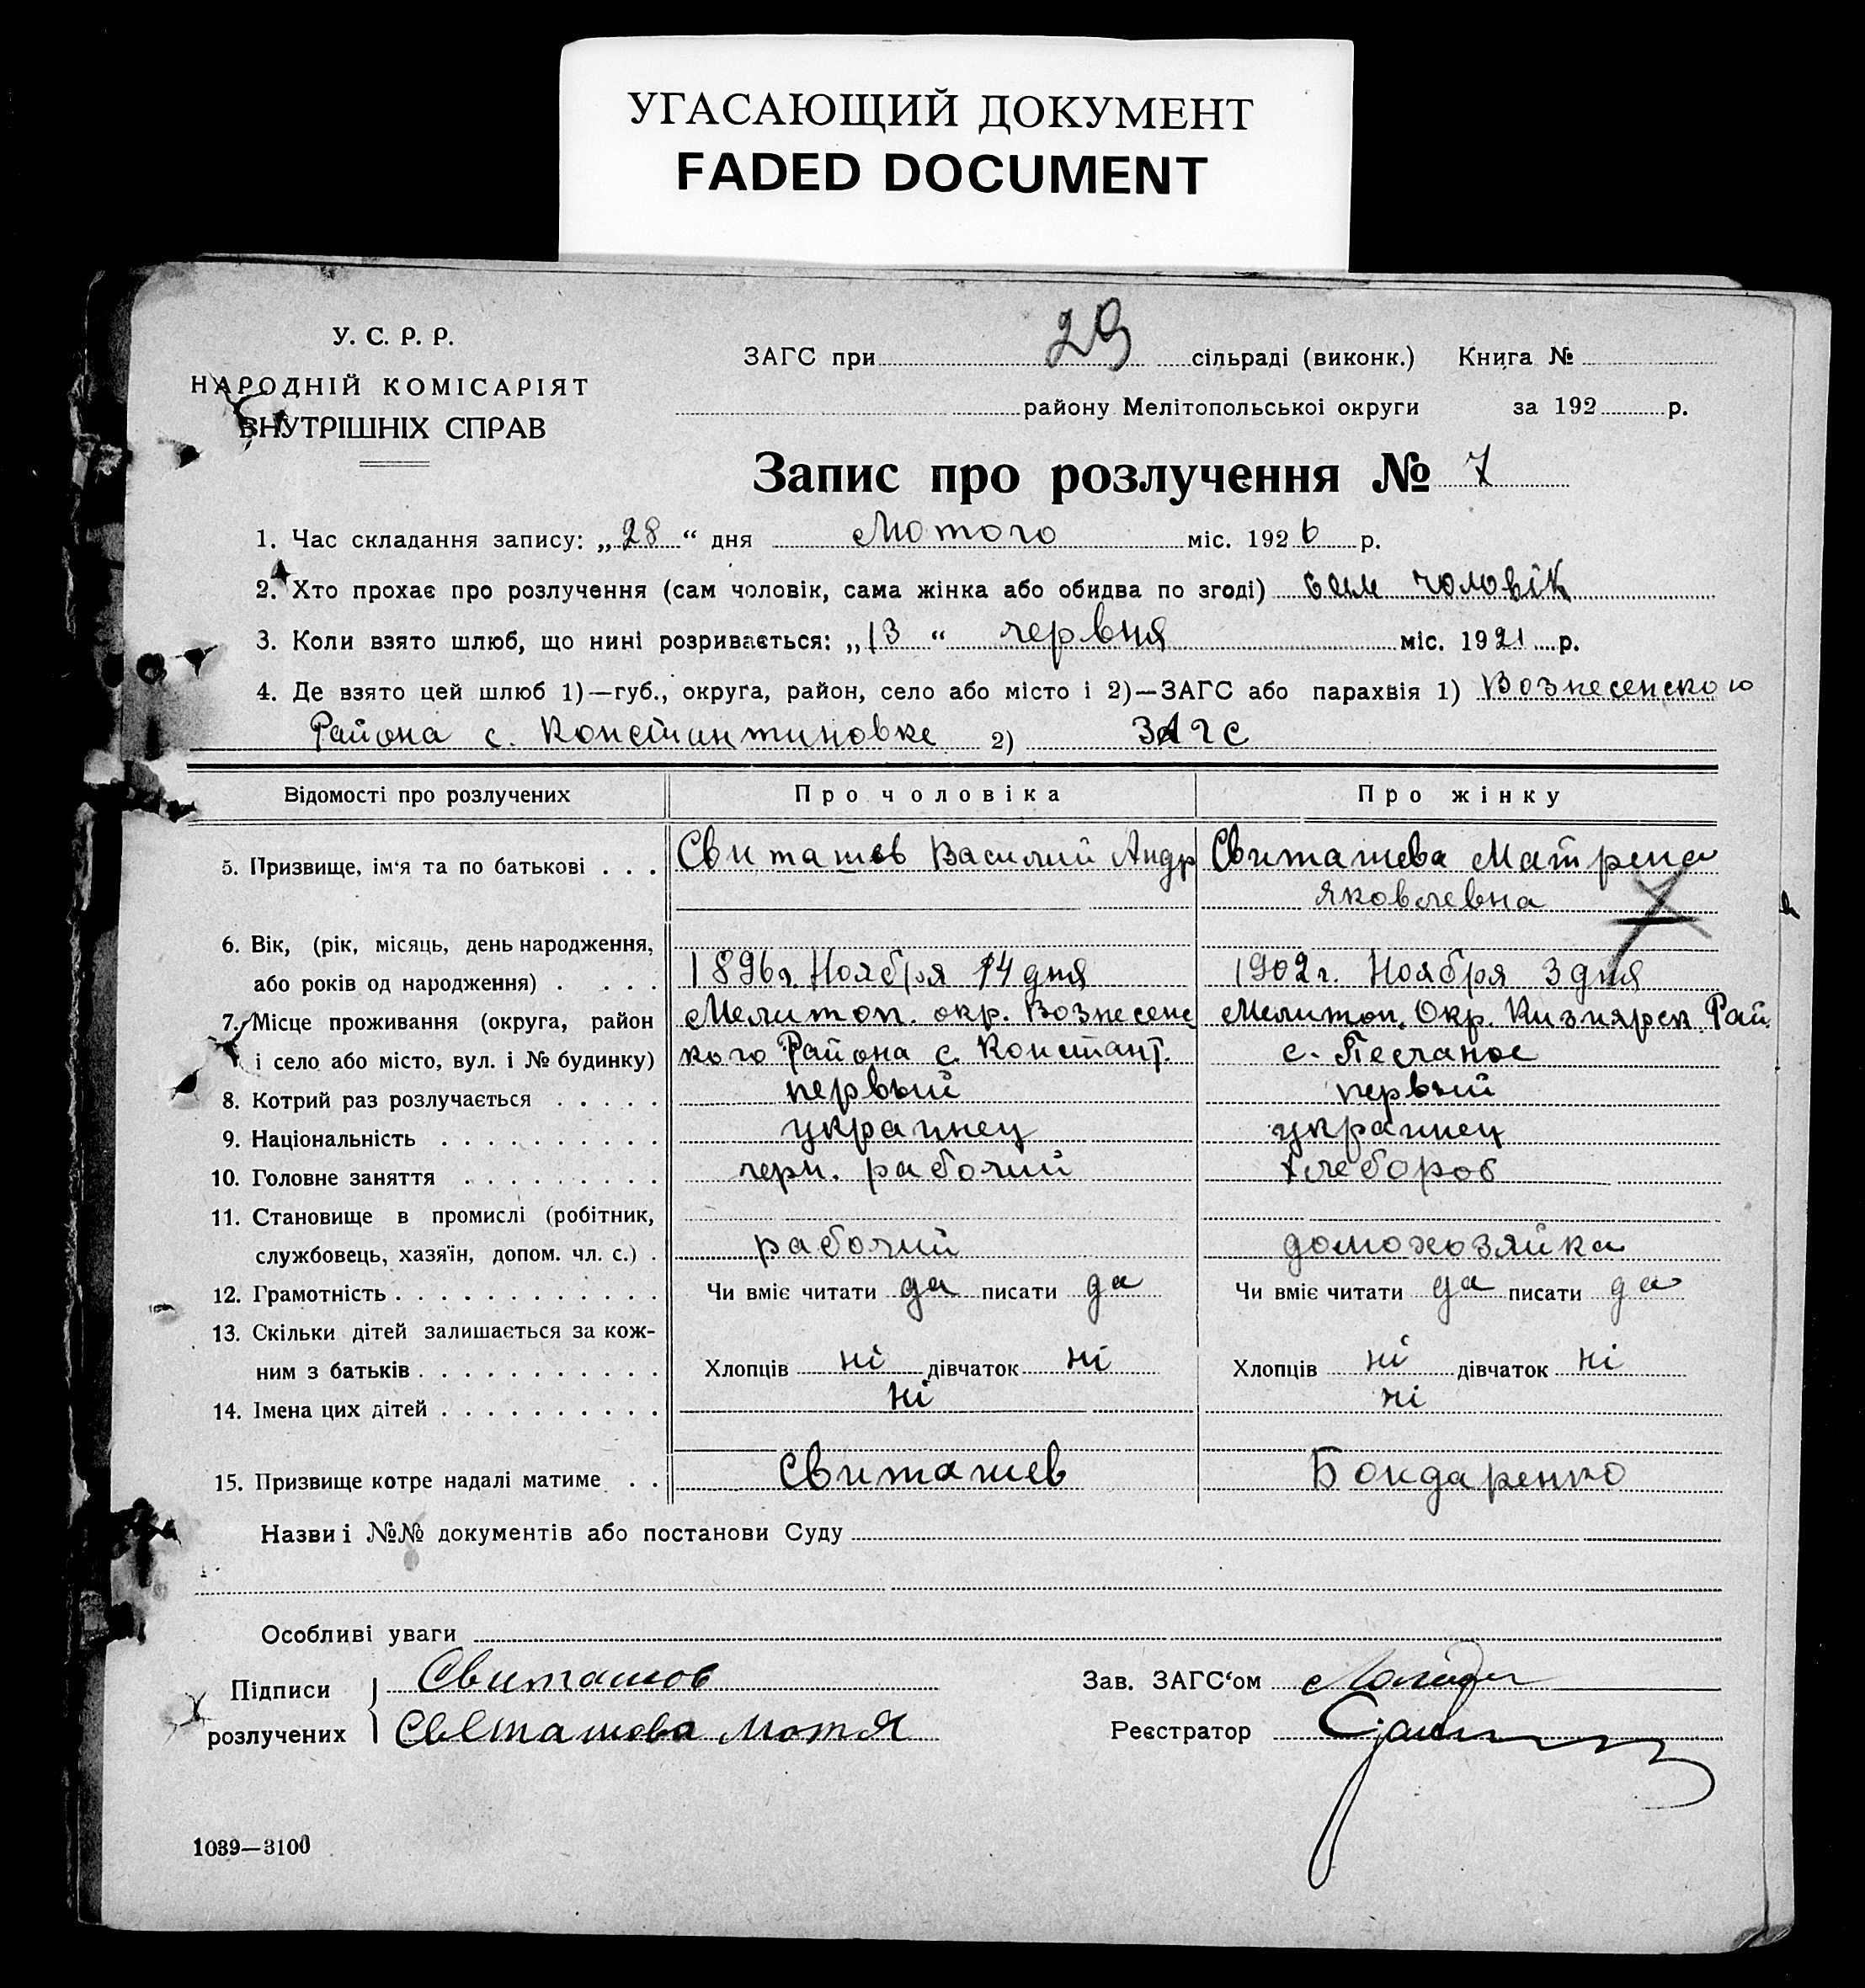 УГАСАЮЩИЙ ДОКУМЕНТ
FADED DOCUMENT
У. С. Р. Р.
НАРОДНІЙ КОМІСАРІЯТ
ВНУТРІШНІХ СПРАВ
29
ЗАГС при сільраді (виконк.) Книга №
району Мелітопольської округи за 192 р.
Запис про розлучення № 7
1. Час складання запису: „28“ дня Лютого міс. 1926 р.
2. Хто прохає про розлучення (сам чоловік, сама жінка або обидва по згоді) сам чоловік
3. Коли взято шлюб, що нині розривається: „13“ червня міс. 1921 р.
4. Де взято цей шлюб 1)—губ., округа, район, село або місто і 2)—ЗАГС або парахвія 1) Вознесенского
Района с. Константиновке 2) ЗАГС
Відомості про розлучених Про чоловіка Про жінку
5. Призвище, ім‘я та по батькові . . . Свиташев Василий Андр Свиташева Матрена
Яковлевна
6. Вік, (рік, місяць, день народження,
або років од народження) . . . . 1896г. Ноября 14 дня 1902г. Ноября 3 дня
7. Місце проживання (округа, район Мелитоп. окр. Вознесенс Мелитоп. Окр. Кизиярск Рай.
і село або місто, вул. і № будинку) кого Района с. Констант. с. Песчаное
8. Котрий раз розлучається . . . . . первый первый
9. Національність . . . . . . . . . . украинец украинец
10. Головне заняття . . . . . . . . . черн. рабочий хлебороб
11. Становище в промислі (робітник,
службовець, хазяїн, допом. чл. с.) . рабочий домохозяйка
12. Грамотність . . . . . . . . . . . . Чи вміє читати да писати да Чи вміє читати да писати да
13. Скільки дітей залишається за кож-
ним з батьків . . . . . . . . . . . Хлопців ні дівчаток ні Хлопців ні дівчаток ні
14. Імена цих дітей . . . . . . . . . . ні ні
15. Призвище котре надалі матиме . . Свиташев Бондаренко
Назви і №№ документів або постанови Суду
Особливі уваги
Підписи Свиташов Зав. ЗАГС‘ом
розлучених Свєташова Мотя Реєстратор
1039—3100